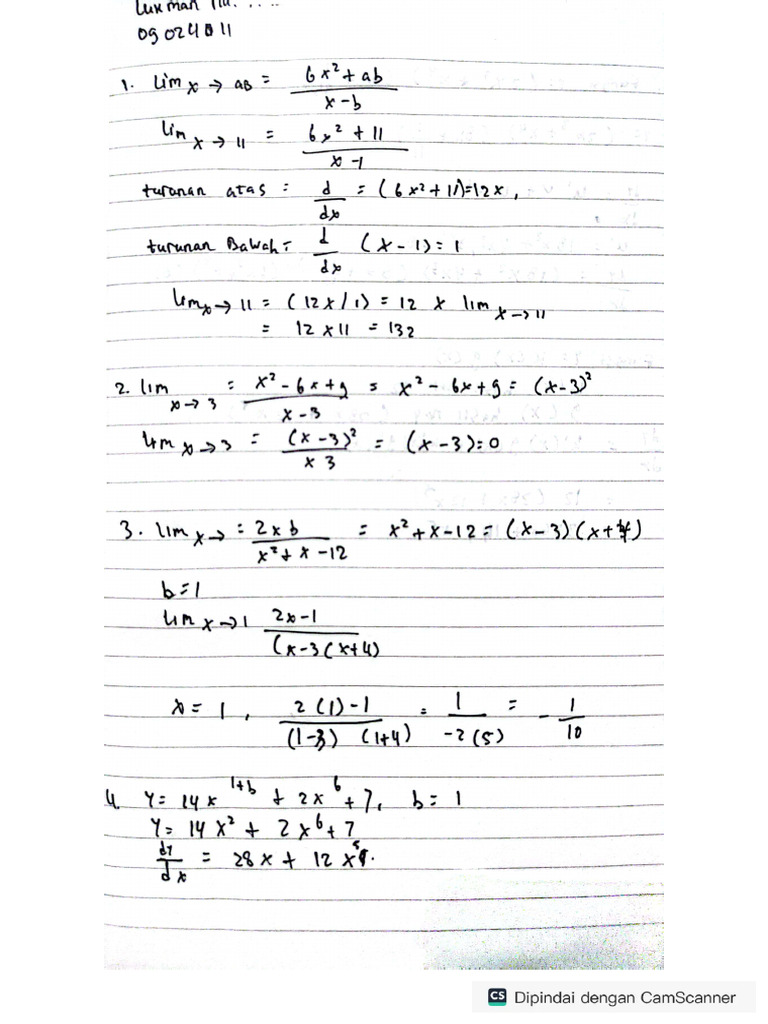 Luxman
09024011
1. lim x → ab = 6x² + ab / x - b
lim x → 11 = 6x² + 11 / x - 1
turunan atas = d/dx = (6x² + 11) = 12x,
turunan Bawah = d/dx (x - 1) = 1
lim x → 11 = (12x/1) = 12 x lim x → 11
= 12 x 11 = 132
2. lim x → 3 = x² - 6x + 9 / x - 3 = x² - 6x + 9 = (x-3)²
lim x → 3 = (x-3)² / x 3 = (x-3) = 0
3. lim x → = 2x b / x² + x - 12 = x² + x - 12 = (x-3)(x+4)
b = 1
lim x → 1 2x - 1 / (x-3(x+4)
x = 1, 2(1) - 1 / (1-3) (1+4) = 1 / -2(5) = - 1/10
4. Y = 14x¹⁺ᵇ + 2x⁶ + 7, b = 1
Y = 14x² + 2x⁶ + 7
dy/dx = 28x + 12x⁵.
CS Dipindai dengan CamScanner